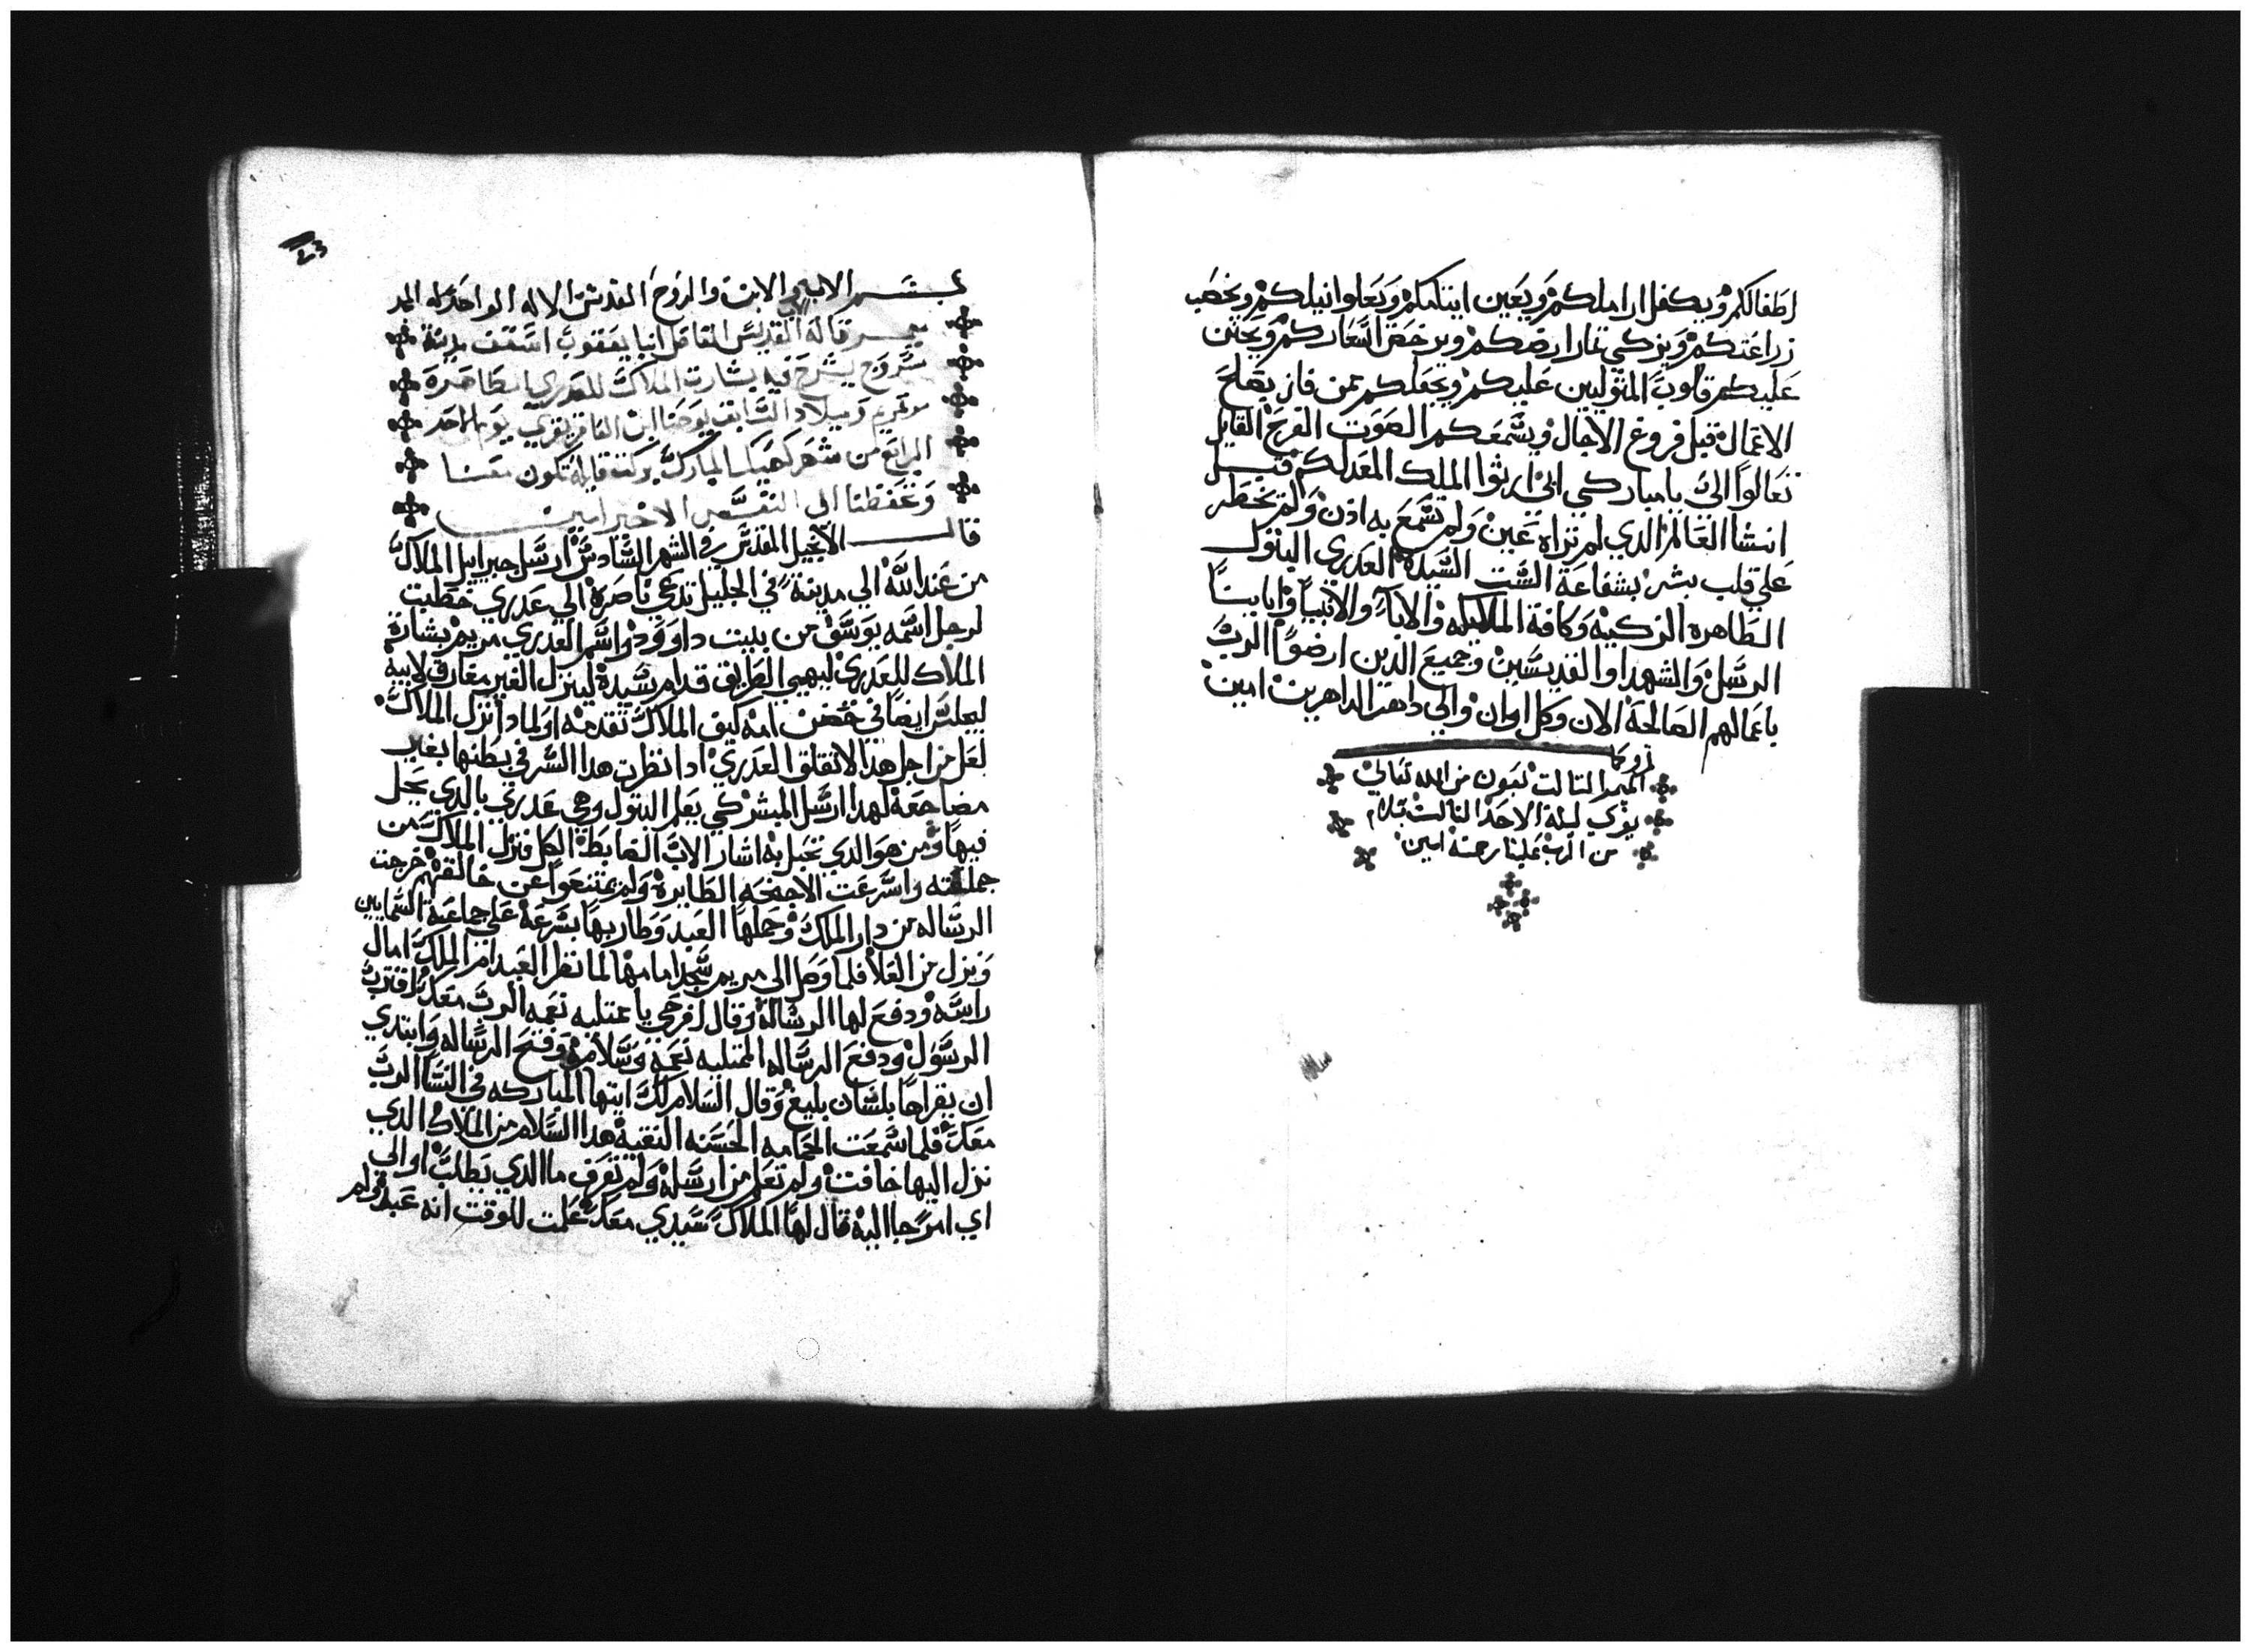 اطفالكم ويكفل اراملكم ويعين ايتامكم ويعلوا نيلكم ويخصب
زراعتكم ويزكي تمار ارضكم ويرخص اسعاركم ويحنن
عليكم قلوب المتوليين عليكم ويجعلكم ممن فاز بصلح
الاعمال قبل فروغ الاجال ويسمعكم الصوت الفرح القايل
تعالوا الي يا مباركي ابي ارثوا الملك المعد لكم قبل
انشا العالم الدي لم تراه عين ولم تسمع به ادن ولم تخطر
علي قلب بشر بشفاعة الست السيدة العدري البتول
الطاهره الزكيه وكافة الملايكه والابا والانبيا واباينا
الرسل والشهدا والقديسين وجميع الدين ارضوا الرب
باعمالهم الصالحة الان وكل اوان والي داهر الداهرين امين
الميمر التالت بعون من الله تعالي
يقري ليلة الاحد التالت
من الرب علينا رحمته امين
23
بسم الاب والابن والروح القدس الاله الواحد له المجد
ميمر قاله القديس الفاضل انبا يعقوب اسقف مدينة
سروج يشرح فيه بشارت الملاك للعدري الطاهرة
مرتمريم وميلاد السابق يوحنا ابن العاقر يقري يوم الاحد
الرابع من شهر كيهك المبارك بركة قايله تكون معنا
وتحفظنا الي النفس الاخير امين
قال الانجيل المقدس في الشهر السادس ارسل جبراييل الملاك
من عند الله الي مدينة في الجليل تدعي ناصرة الي عدري خطبت
لرجل اسمه يوسف من بيت داوود واسم العدري مريم بشارة
الملاك للعدري ليهيي الطريق قدام سيدة لينزل الغير مفارق لابيه
ليجلس ايضا في حضن امه كيف الملاك تقدمه اولمادا نزل الملاك
لعل من اجل هدا لا تقلق العدري ادا نظرت هدا السر في بطنها بغير
مضاجعة لهدا ارسل المبشر كي يعلم البتول وهي عدري بالدي يحل
فيها ومن هو الدي تحبل به اشار الاب الضابط الكل فنزل الملاك من
واسرعت الاجنحه الطايرة ولم يمتنعوا عن خالقهم خرجت
الرساله من دار الملك وحملها العبد وطار بها بسرعة علي جماعة السمايين
ونزل من العلا فلما وصل الي مريم سجد امامها لما نظر العبد ام الملك امال
راسه ودفع لها الرسالة وقال افرحي يا ممتليه نعمه الرب معك اقترب
الرسول ودفع الرساله الممتليه نعمه وسلامه وفتح الرساله وابتدي
ان يقراها بلسان بليغ وقال السلام لك ايتها المباركه في النسا الرب
معك فلما سمعت الحمامه الحسنه النقية هدا السلام من الملاك الدي
نزل اليها خافت ولم تعلم من ارسله ولم تعرف ما الدي يطلب او الي
اي امر جا اليه قال لها الملاك سيدي معك علمت للوقت انه عبد ولم